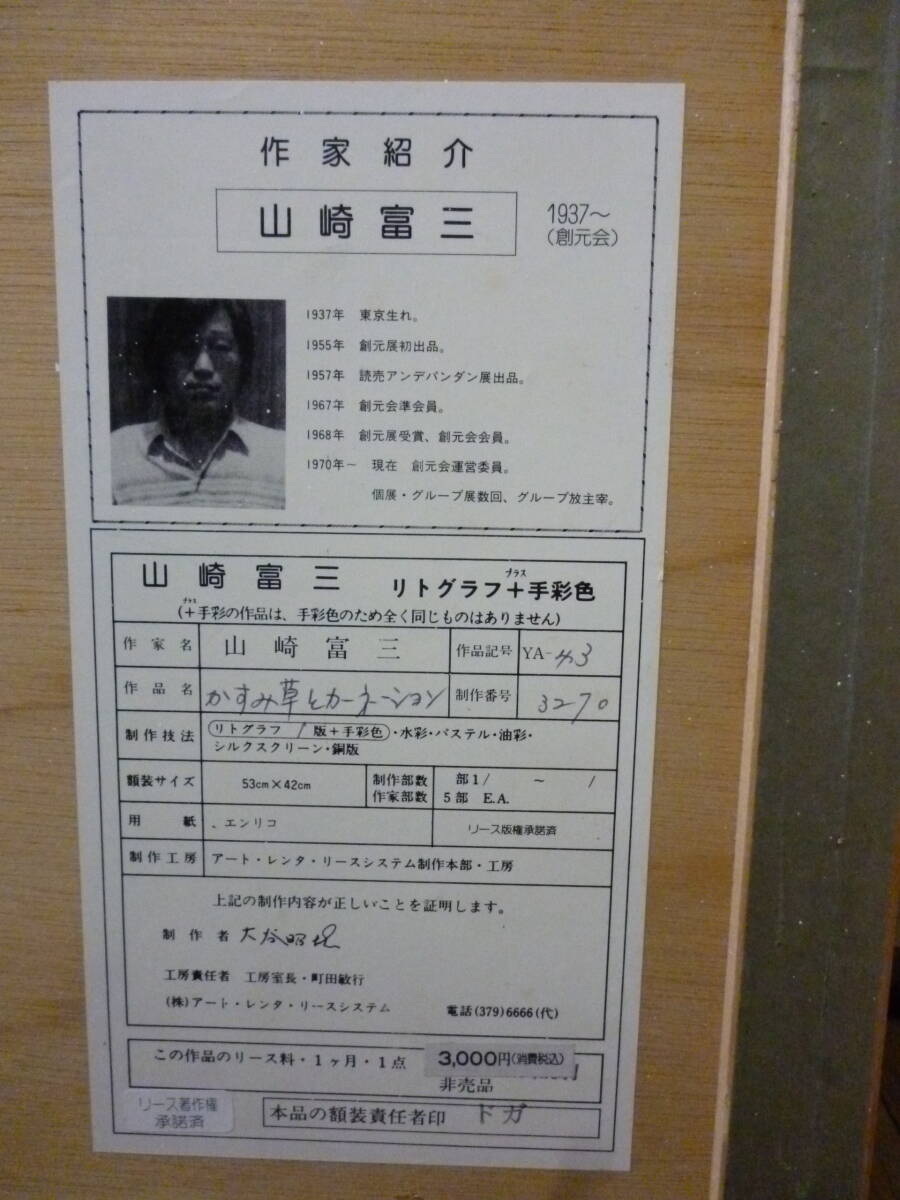 作家紹介
山崎富三
1937～
(創元会)
1937年 東京生れ。
1955年 創元展初出品。
1957年 読売アンデパンダン展出品。
1967年 創元会準会員。
1968年 創元展受賞、創元会会員。
1970年－ 現在 創元会運営委員。
個展・グループ展数回、グループ放主宰。
山崎富三 リトグラフ＋手彩色
プラス
プラス
(＋手彩の作品は、手彩色のため全く同じものはありません)
作家名 山崎富三 作品記号 YA-43
作品名 かすみ草とカーネーション 制作番号 3270
制作技法 リトグラフ / 版＋手彩色・水彩・パステル・油彩・
シルクスクリーン・銅版
額装サイズ 53cm×42cm 制作部数 部1/ ～ /
作家部数 5部 E.A.
用紙 、エンリコ リース版権承諾済
制作工房 アート・レンタ・リースシステム制作本部・工房
上記の制作内容が正しいことを証明します。
制作者 大谷
工房責任者 工房室長・町田敏行
(株)アート・レンタ・リースシステム 電話(379)6666(代)
この作品のリース料・1ヶ月・1点 3,000円(消費税込)
非売品
リース著作権
承諾済
本品の額装責任者印 ドガ